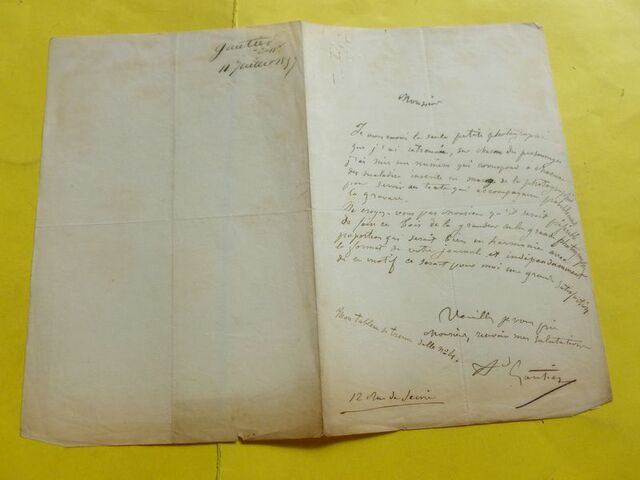 Gautier
11 Juillet 1857
Monsieur
Je vous envoie la seule petite photographie
que j'ai retrouvée, sur chacun des personnages
j'ai mis un numero qui correspond a chacune
des maladies inscrites en marge de la photographie
pour servir au texte qui accompagnera
la gravure.
Ne croyez-vous pas monsieur qu'il serait préférable
de faire ce bois de la grandeur de la grande photographie
proportion qui serait bien en harmonie avec
le format de votre journal et indépendamment
de ce motif ce serait pour moi une grande satisfaction
Veuillez je vous prie
Monsieur, recevoir mes salutations
Ad Gautier
Mon tableau se trouve salle no 4.
12 Rue de Seine